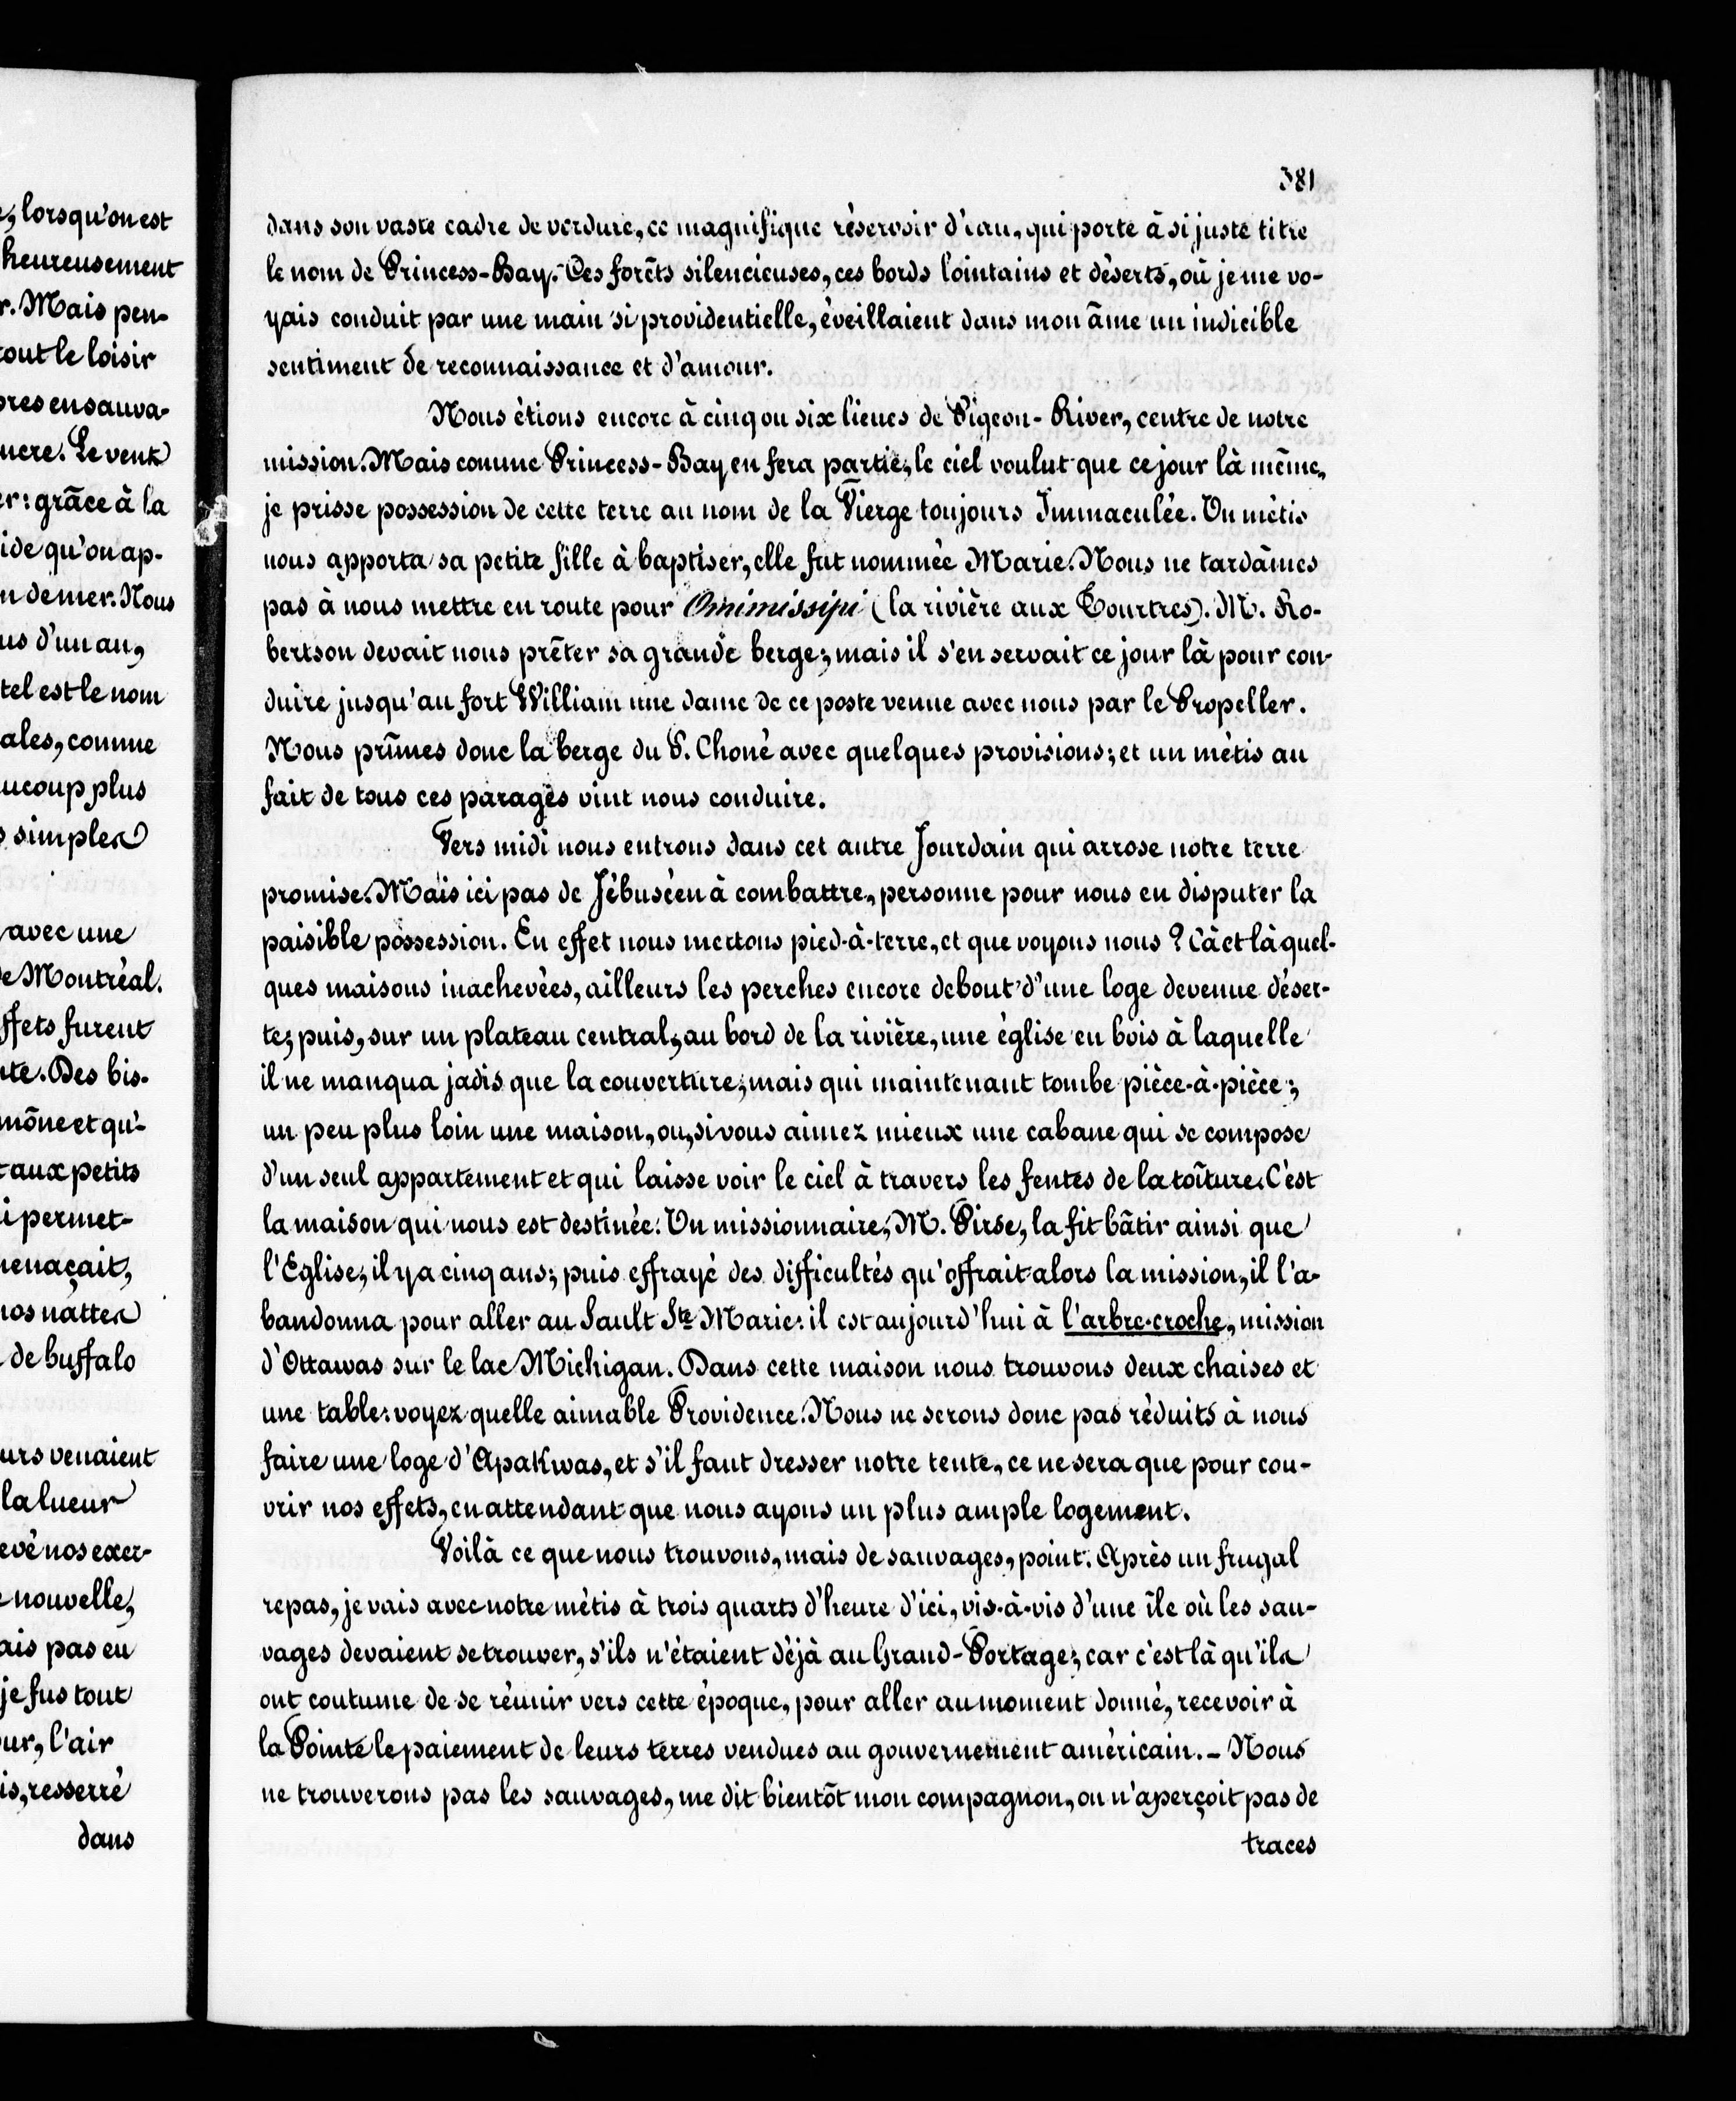 e, lorsqu'on est
heureusement
r. Mais pen-
tout le loisir
ores en sauva-
uere. Le vent
er: grâce à la
ide qu'on ap-
n de mer. Nous
us d'un an,
tel est le nom
ales, comme
aucoup plus
s simples
avec une
de Montréal.
ffets furent
nte. Des bis-
mône et qu'-
t aux petits
i permet-
menaçait,
nos nattes
de buffalo
urs venaient
la lueur
evé nos exer-
e nouvelle,
ais pas en
je fus tout
our, l'air
is, resserré
dans
381
dans son vaste cadre de verdure, ce magnifique réservoir d'eau, qui porte à si juste titre
le nom de Princess-Bay. Ces forêts silencieuses, ces bords lointains et déserts, où je me vo-
yais conduit par une main si providentielle, éveillaient dans mon âme un indicible
sentiment de reconnaissance et d'amour.
Nous étions encore à cinq ou six lieues de Pigeon-River, centre de notre
mission. Mais comme Princess-Bay en fera partie, le ciel voulut que ce jour là même,
je prisse possession de cette terre au nom de la Vierge toujours Immaculée. Un métis
nous apporta sa petite fille à baptiser, elle fut nommée Marie. Nous ne tardâmes
pas à nous mettre en route pour Omimissipi (la rivière aux Tourtres). M. Ro-
bertson devait nous prêter sa grande berge; mais il s'en servait ce jour là pour con-
duire jusqu'au fort William une dame de ce poste venue avec nous par le Propeller.
Nous prîmes donc la berge du P. Choné avec quelques provisions; et un métis au
fait de tous ces parages vint nous conduire.
Vers midi nous entrons dans cet autre Jourdain qui arrose notre terre
promise. Mais ici pas de Jébuséen à combattre, personne pour nous en disputer la
paisible possession. En effet nous mettons pied-à-terre, et que voyons nous? Cà et là quel-
ques maisons inachevées, ailleurs les perches encore debout d'une loge devenue déser-
te; puis, sur un plateau central, au bord de la rivière, une église en bois à laquelle
il ne manqua jadis que la couverture; mais qui maintenant tombe pièce-à-pièce;
un peu plus loin une maison, ou, si vous aimez mieux une cabane qui se compose
d'un seul appartement et qui laisse voir le ciel à travers les fentes de la toîture. C'est
la maison qui nous est destinée. Un missionnaire, M. Pirse, la fit bâtir ainsi que
l'Eglise, il y a cinq ans; puis effrayé des difficultés qu'offrait alors la mission, il l'a-
bandonna pour aller au Sault Ste Marie: il est aujourd'hui à l'arbre-croche, mission
d'Ottawas sur le lac Michigan. Dans cette maison nous trouvons deux chaises et
une table: voyez quelle aimable Providence. Nous ne serons donc pas réduits à nous
faire une loge d'Apakwas, et s'il faut dresser notre tente, ce ne sera que pour cou-
vrir nos effets, en attendant que nous ayons un plus ample logement.
Voilà ce que nous trouvons, mais de sauvages, point. Après un frugal
repas, je vais avec notre métis à trois quarts d'heure d'ici, vis-à-vis d'une île où les sau-
vages devaient se trouver, s'ils n'étaient déjà au Grand-Portage; car c'est là qu'ils
ont coutume de se réunir vers cette époque, pour aller au moment donné, recevoir à
la Pointe le paiement de leurs terres vendues au gouvernement américain. - Nous
ne trouverons pas les sauvages, me dit bientôt mon compagnon, on n'aperçoit pas de
traces